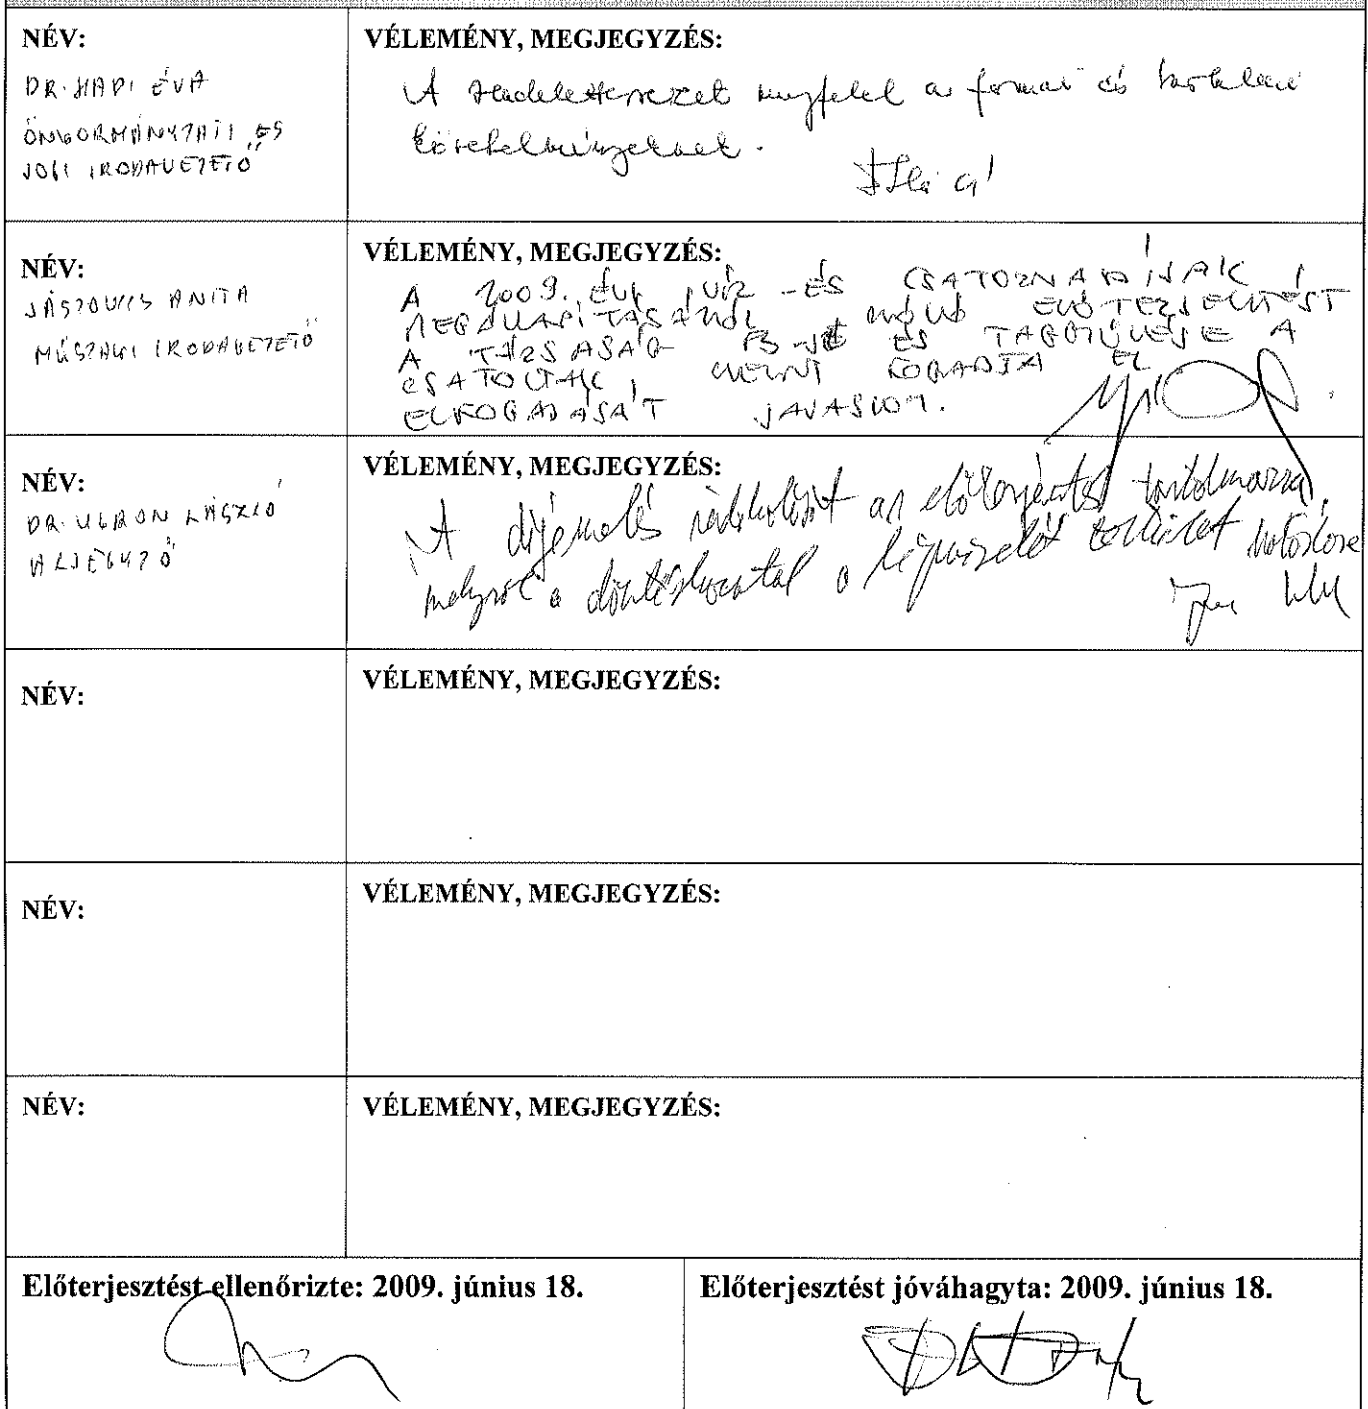 NÉV:
DR. HADI ÉVA
ÖNKORMÁNYZATI ÉS
JOGI IRODAVEZETŐ
VÉLEMÉNY, MEGJEGYZÉS:
A rendelettervezet megfelel a formai és tartalmi
követelményeknek.
NÉV:
JÁSZOVICS ANITA
MŰSZAKI IRODAVEZETŐ
VÉLEMÉNY, MEGJEGYZÉS:
A 2009. ÉVI VÍZ-ÉS CSATORNADÍJAK
MEGÁLLAPÍTÁSÁRÓL SZÓLÓ ELŐTERJESZTÉST
A TÁRSASÁG FB-JE ÉS TAGGYŰLÉSE A
CSATOLTAK SZERINT FOGADTA EL
ELFOGADÁSÁT JAVASLOM.
NÉV:
DR. UGRON LÁSZLÓ
ALJEGYZŐ
VÉLEMÉNY, MEGJEGYZÉS:
A díjemelés indokolását az előterjesztés tartalmazza,
melyről a döntéshozatal a képviselő testület hatásköre
NÉV:
VÉLEMÉNY, MEGJEGYZÉS:
NÉV:
VÉLEMÉNY, MEGJEGYZÉS:
NÉV:
VÉLEMÉNY, MEGJEGYZÉS:
Előterjesztést ellenőrizte: 2009. június 18.
Előterjesztést jóváhagyta: 2009. június 18.